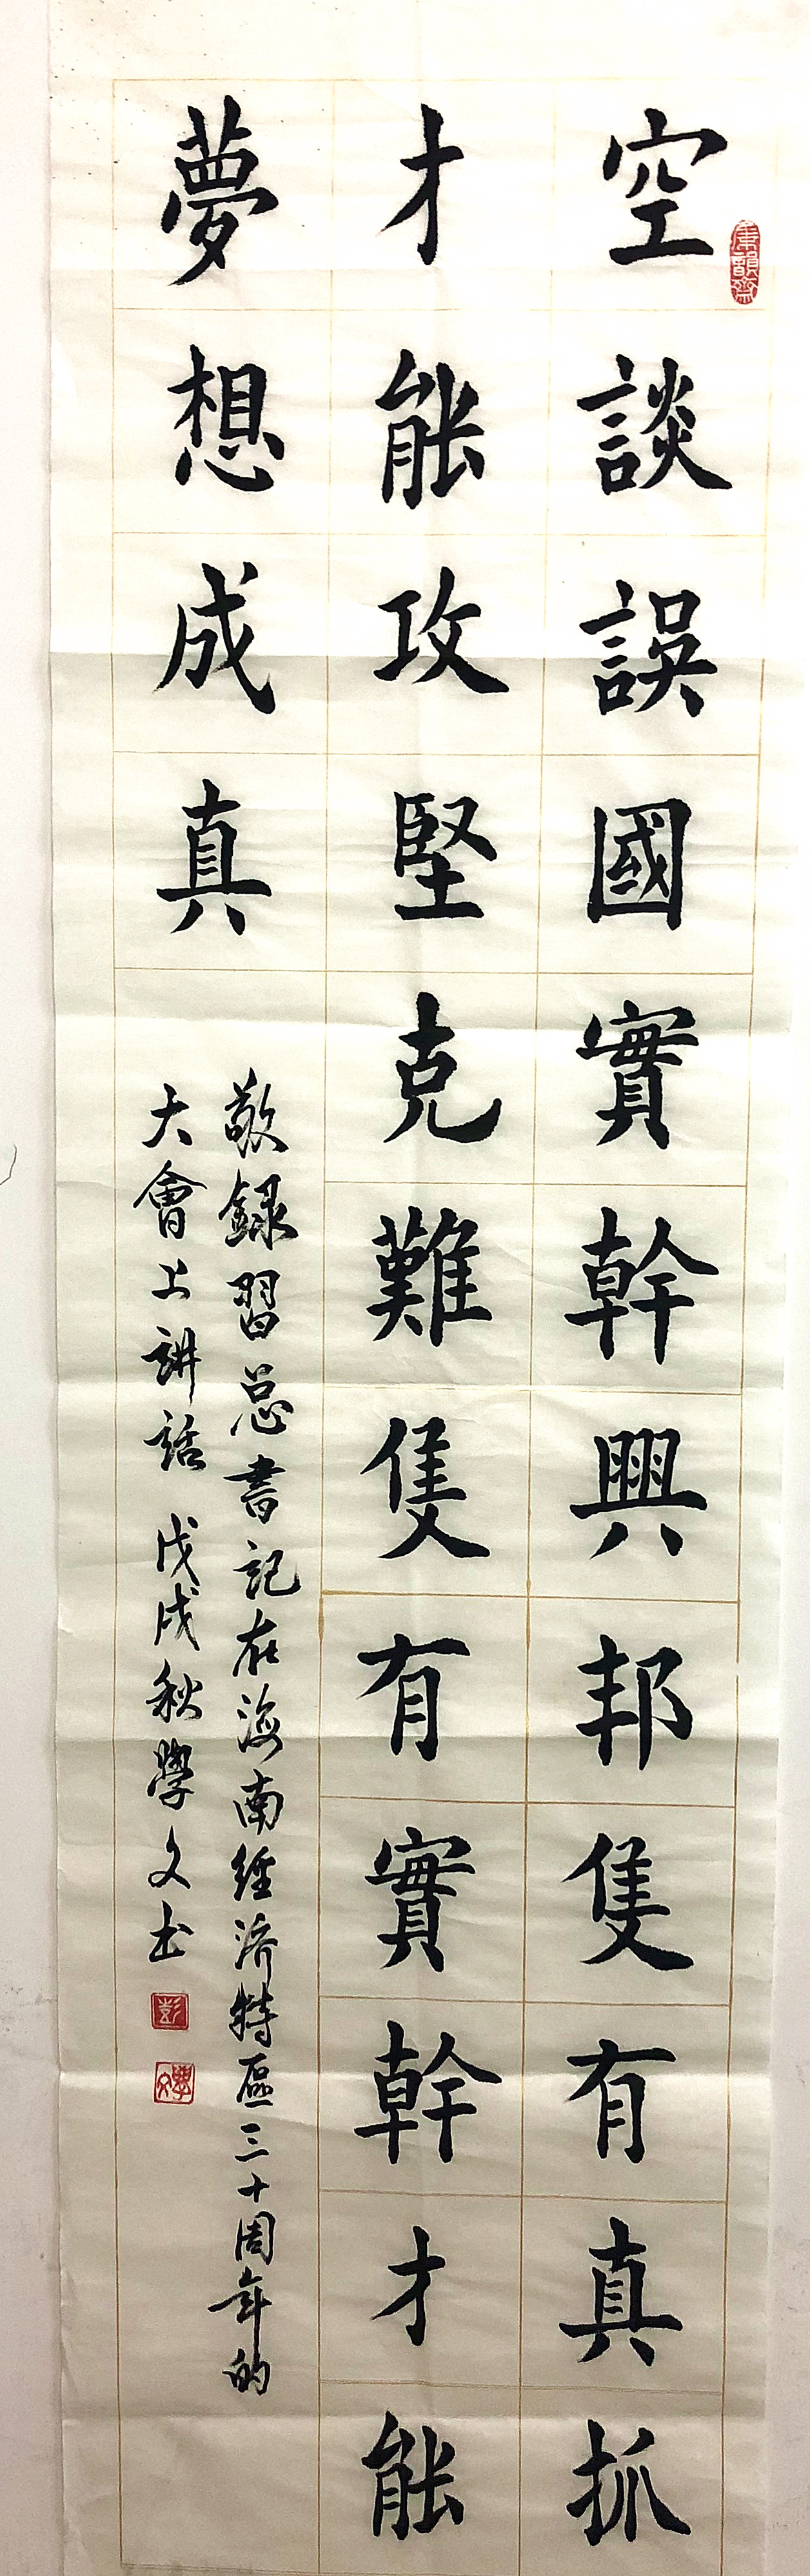 空談誤國實幹興邦隻有真抓
才能攻堅克難隻有實幹才能
夢想成真
敬録習总書記在海南經济特區三十周年的
大會上講話 戊戌秋學文书
彭
學文